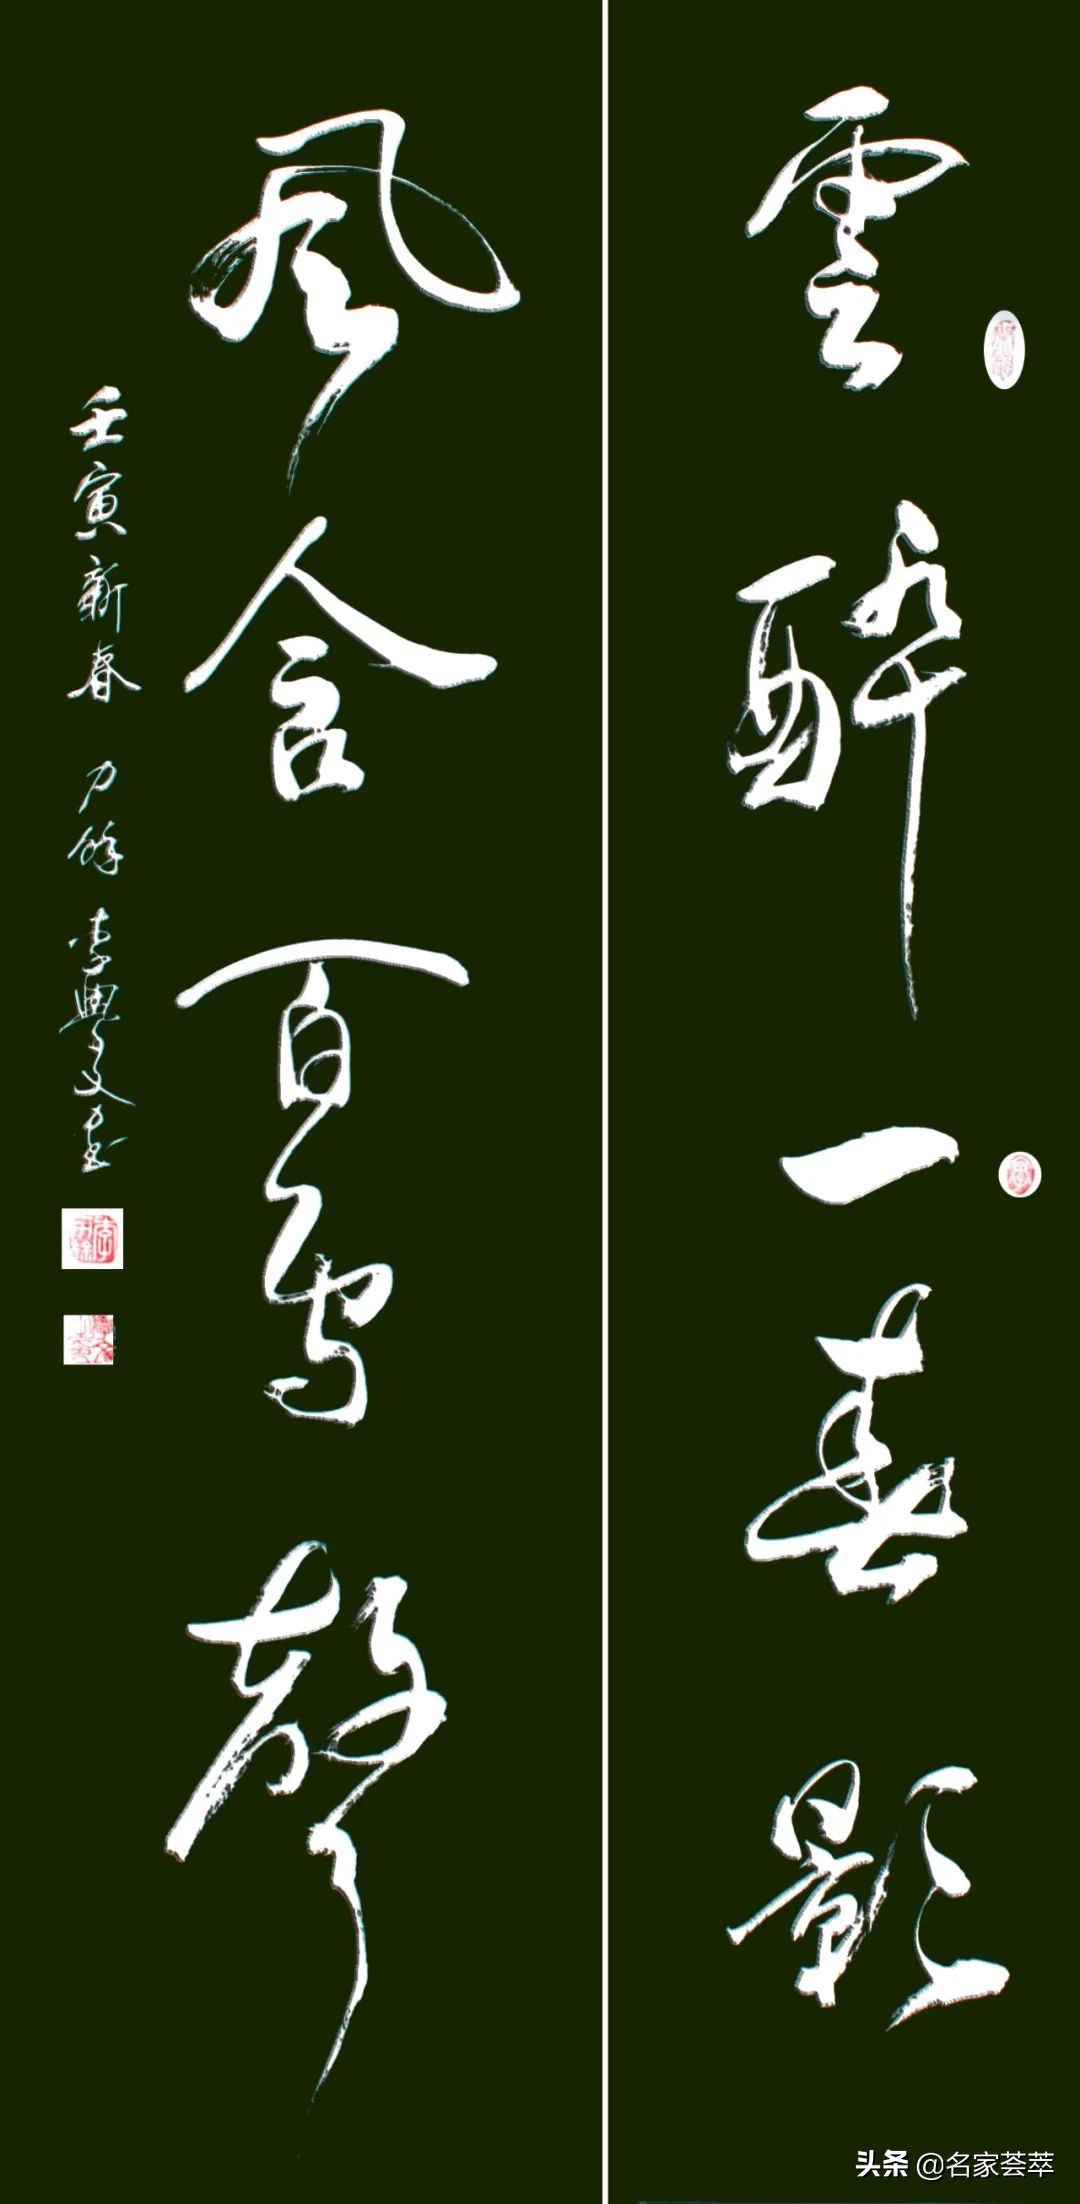 雲醉一春影
風含百鳥聲
壬寅新春 力餘 李興文書
头条 @名家荟萃